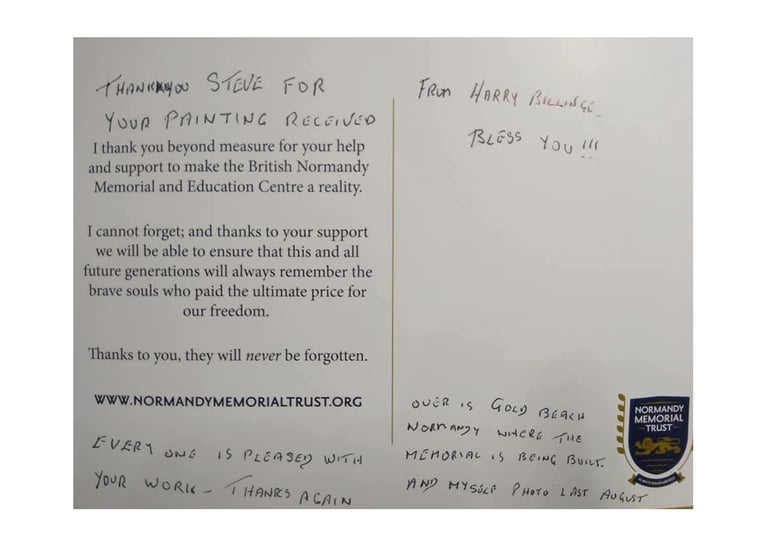 THANKYOU STEVE FOR
YOUR PAINTING RECEIVED
I thank you beyond measure for your help
and support to make the British Normandy
Memorial and Education Centre a reality.
I cannot forget; and thanks to your support
we will be able to ensure that this and all
future generations will always remember the
brave souls who paid the ultimate price for
our freedom.
Thanks to you, they will never be forgotten.
WWW.NORMANDYMEMORIALTRUST.ORG
EVERY ONE IS PLEASED WITH
YOUR WORK - THANKS AGAIN
FROM HARRY BILLINGE
BLESS YOU !!!
OVER IS GOLD BEACH
NORMANDY WHERE THE
MEMORIAL IS BEING BUILT.
AND MYSELF PHOTO LAST AUGUST
NORMANDY
MEMORIAL
TRUST